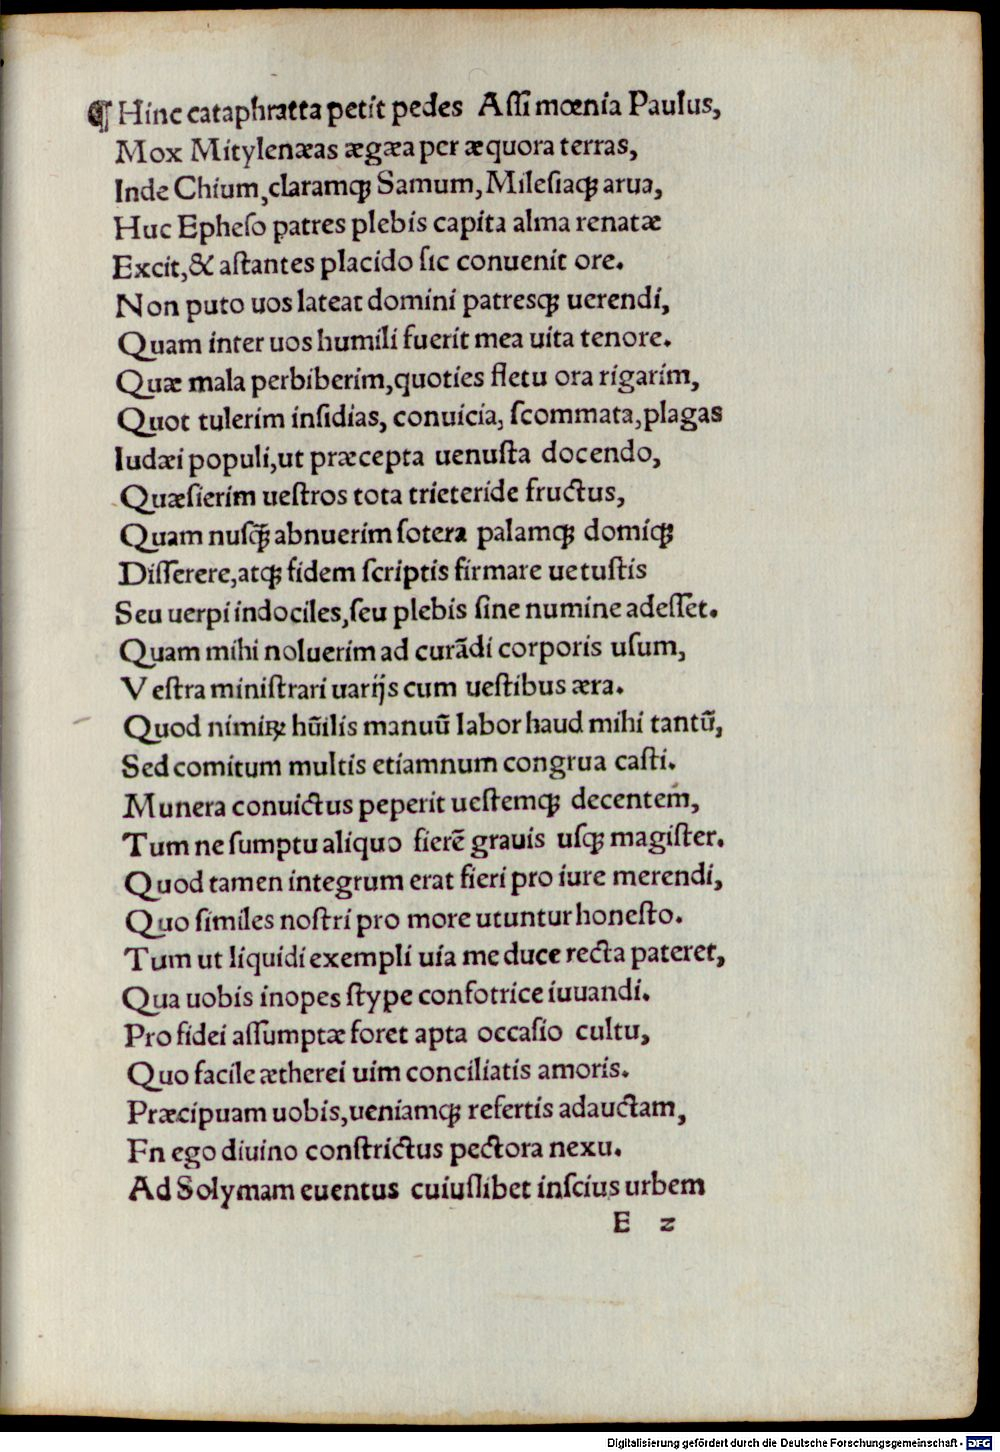 ¶ Hinc cataphratta petit pedes Aſſi mœnia Paulus,
Mox Mitylenæas ægæa per æquora terras,
Inde Chium, claramqꝫ Samum, Mileſiaqꝫ arua,
Huc Epheſo patres plebis capita alma renatæ
Excit, & aſtantes placido ſic conuenit ore.
Non puto uos lateat domini patresqꝫ uerendi,
Quam inter uos humili fuerit mea uita tenore.
Quæ mala perbiberim, quoties fletu ora rigarim,
Quot tulerim inſidias, conuicia, ſcommata, plagas
Iudæi populi, ut præcepta uenuſta docendo,
Quæſierim ueſtros tota trieteride fructus,
Quam nuſq̃ꝫ abnuerim ſotera palamqꝫ domiqꝫ
Diſſerere, atqꝫ fidem ſcriptis firmare uetuſtis
Seu uerpi indociles, ſeu plebis ſine numine adeſſet.
Quam mihi noluerim ad curãdi corporis uſum,
Veſtra miniſtrari uarijs cum ueſtibus æra.
Quod nimiꝝ hũilis manuũ labor haud mihi tantũ,
Sed comitum multis etiamnum congrua caſti.
Munera conuictus peperit ueſtemqꝫ decentem,
Tum ne ſumptu aliquo fierẽ grauis uſqꝫ magiſter.
Quod tamen integrum erat fieri pro iure merendi,
Quo ſimiles noſtri pro more utuntur honeſto.
Tum ut liquidi exempli uia me duce recta pateret,
Qua uobis inopes ſtype confotrice iuuandi.
Pro fidei aſſumptæ foret apta occaſio cultu,
Quo facile ætherei uim conciliatis amoris.
Præcipuam uobis, ueniamqꝫ refertis adauctam,
Fn ego diuino conſtrictus pectora nexu.
Ad Solymam euentus cuiuſlibet inſcius urbem
E 2
Digitalisierung gefördert durch die Deutsche Forschungsgemeinschaft - DFG